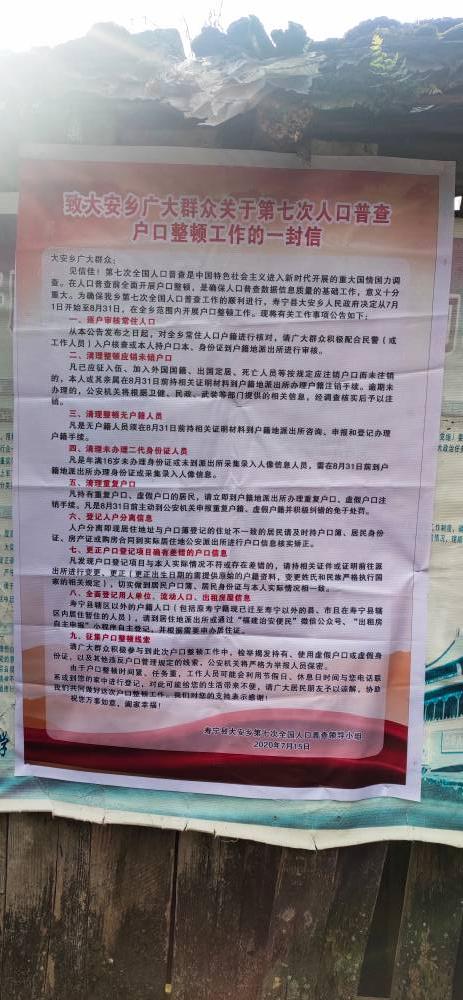 致大安乡广大群众关于第七次人口普查
户口整顿工作的一封信
大安乡广大群众:
见信佳!第七次全国人口普查是中国特色社会主义进入新时代开展的重大国情国力调
查。在人口普查前全面开展户口整顿,是确保人口普查数据信息质量的基础工作,意义十分
重大。为确保我乡第七次全国人口普查工作的顺利进行,寿宁县大安乡人民政府决定从7月
1日开始至8月31日,在全乡范围内开展户口整顿工作。现将有关工作事项公告如下:
一、逐户审核常住人口
从本公告发布之日起,对全乡常住人口户籍进行核对,请广大群众积极配合民警(或
工作人员)入户核查或本人持户口本、身份证到户籍地派出所进行审核。
二、清理整顿应销未销户口
凡已应征入伍、加入外国国籍、出国定居、死亡人员等按规定应注销户口而未注销
的,本人或其亲属在8月31日前持相关证明材料到户籍地派出所办理户籍注销手续。逾期未
办理的,公安机关将根据卫健、民政、武装等部门提供的相关信息,经调查核实后予以注
销。
三、清理整顿无户籍人员
凡是无户籍人员须在8月31日前持相关证明材料到户籍地派出所咨询、申报和登记办理
户籍手续。
四、清理未办理二代身份证人员
凡是年满16岁未办理身份证或未到派出所采集录入人像信息人员,需在8月31日前到户
籍地派出所办理身份证或采集录入人像信息。
五、清理重复户口
凡持有重复户口、虚假户口的居民,请立即到户籍地派出所办理重复户口、虚假户口注
销手续。凡是8月31日前主动到公安机关申报重复户籍、虚假户籍并积极纠错的免于处罚。
六、登记人户分离信息
人户分离即现居住地址与户口簿登记的住址不一致的居民请及时持户口簿、居民身份
证、房产证或购房合同到实际居住地公安派出所进行户口信息核实矫正。
七、更正户口登记项目确有差错的户口信息
凡发现户口登记项目与本人实际情况不符或存在差错的,请持相关证件或证明前往派
出所进行变更、更正(更正出生日期的需提供原始的户籍资料,变更姓氏和民族严格执行国
家的相关规定),切实做到居民户口簿、居民身份证与本人实际情况相一致。
八、全面登记用人单位、流动人口、出租房屋信息
寿宁县辖区以外的户籍人口(包括原寿宁籍现已迁至寿宁以外的县、市且在寿宁县辖
区内居住暂住的人员),请到居住地派出所或通过“福建治安便民”微信公众号、“出租房
自主申报”小程序自主登记,并根据需要申办居住证。
九、征集户口整顿线索
请广大群众积极参与到此次户口整顿工作中,检举揭发持有、使用虚假户口或虚假身
份证,以及其他违反户口管理规定的线索,公安机关将严格为举报人员保密。
由于户口整顿时间紧、任务重,工作人员可能会利用节假日、休息日时间与您电话联
系或到您的家中进行登记,对此可能给您的生活带来不便,请广大居民朋友予以谅解,协助
我们共同做好这次户口整顿工作。我们对您的支持表示感谢!
祝您万事如意,阖家幸福!
寿宁县大安乡第七次全国人口普查领导小组
2020年7月15日